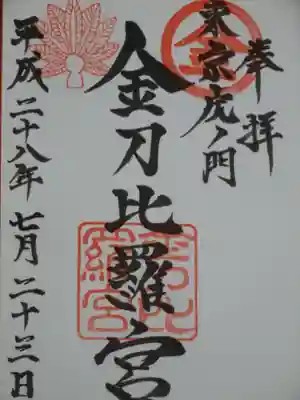 奉拝
東京虎ノ門
金刀比羅宮
平成二十八年七月二十三日